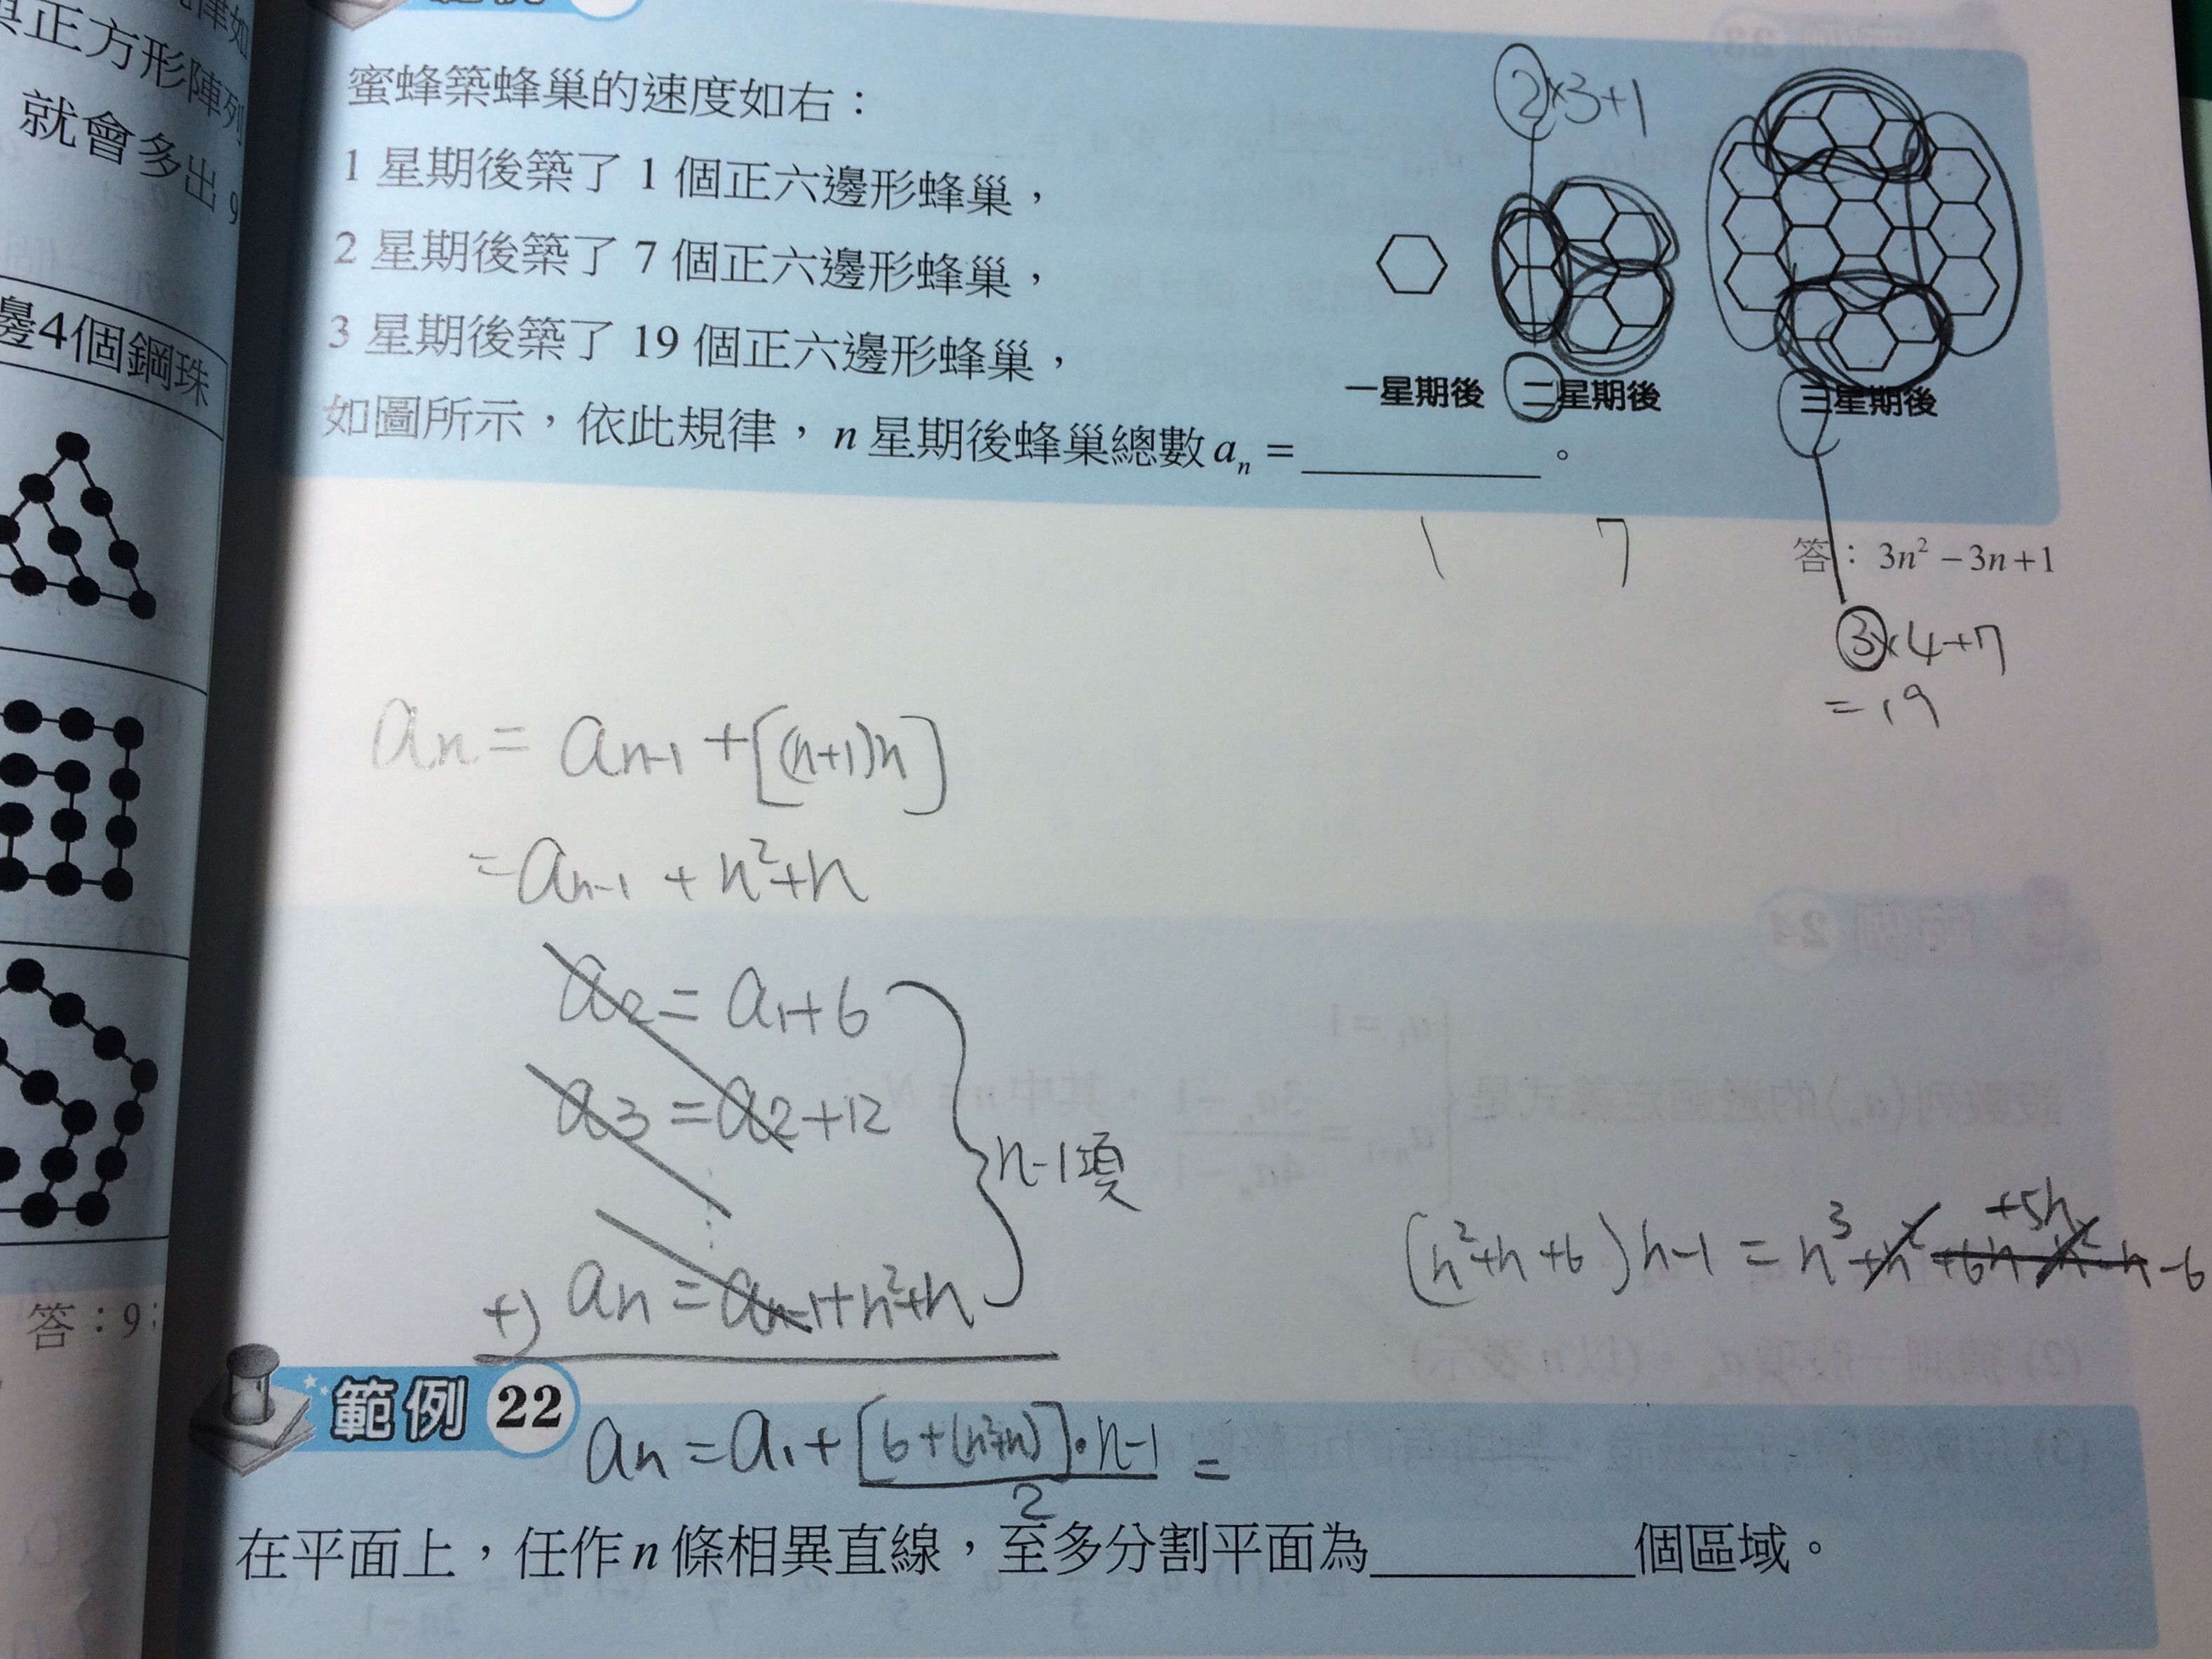 律如
與正方形陣列
就會多出 9
邊4個鋼珠
答：9；
範例
蜜蜂築蜂巢的速度如右：
1 星期後築了 1 個正六邊形蜂巢，
2 星期後築了 7 個正六邊形蜂巢，
3 星期後築了 19 個正六邊形蜂巢，
如圖所示，依此規律，n 星期後蜂巢總數 aₙ = ________。
2×3+1
一星期後 二星期後 三星期後
1 7
答：3n² − 3n + 1
3×4+7
= 19
an = an-1 + [(n+1)n]
= an-1 + n²+n
a2 = a1+6
a3 = a2+12
n-1項
+) an = an-1+n²+n
(n²+n+6)n-1 = n³+n²+6n-n²-n-6
+5n
範例 22
an = a1 + [6+(n²+n)]·n-1 / 2 =
在平面上，任作 n 條相異直線，至多分割平面為________個區域。